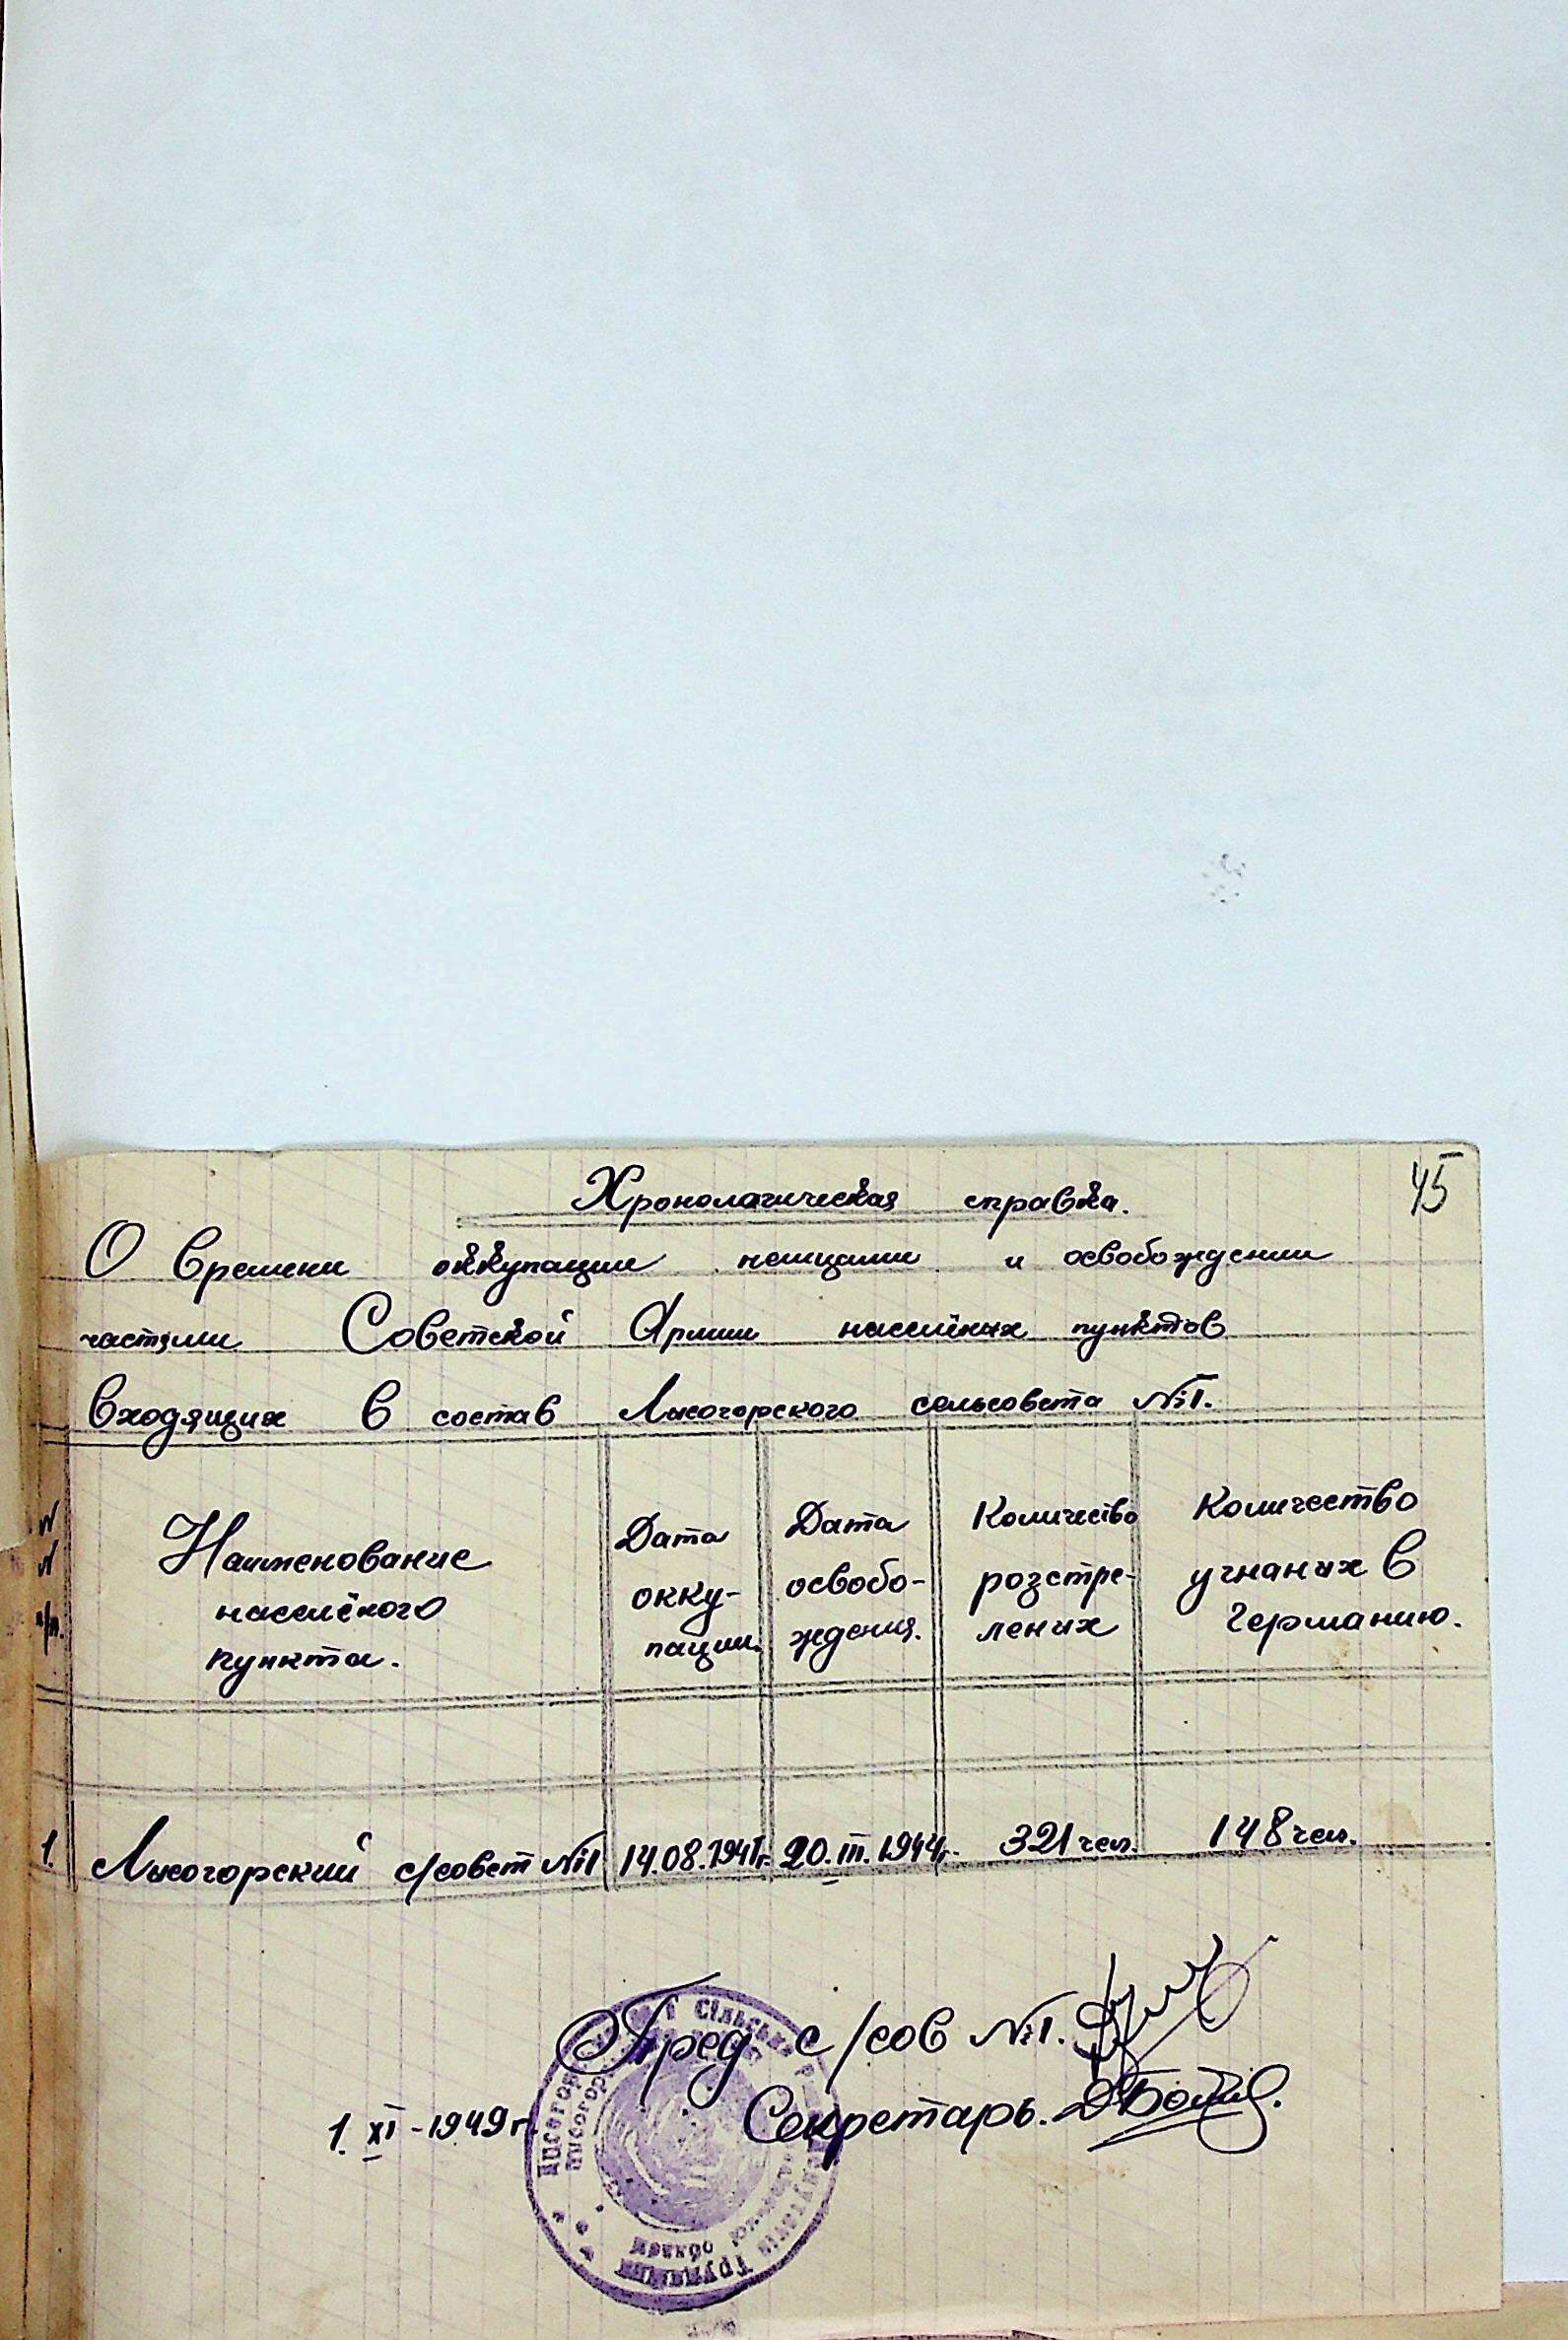 45
Хронологическая справка.
О времени оккупации немцами и освобождении
частями Советской Армии населёных пунктов
входящих в состав Лысогорского сельсовета №1.
N
N
п/п.
Наименование
населёного
пункта.
Дата
окку-
пации.
Дата
освобо-
ждения.
Количество
розстре-
леных
Количество
угнаных в
Германию.
1. Лысогорский с/совет №1 14.08.1941г. 20.III.1944г. 321 чел. 148 чел.
Пред. с/сов №1.
Секретарь.
1. XI-1949 г.
сільськ
трудящих
області